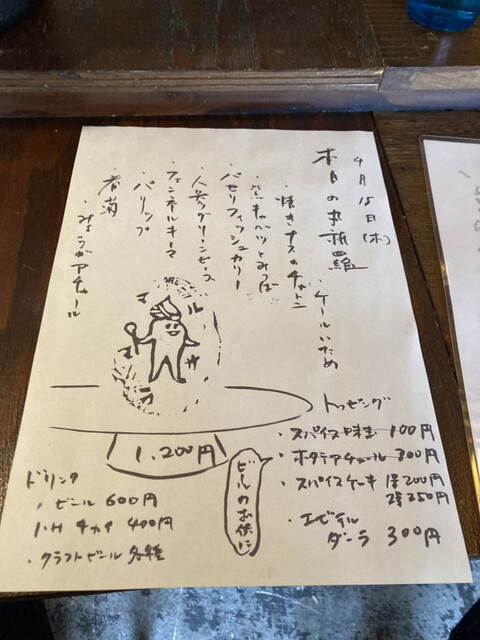 4月15日(木)
本日の
・ケールいため
・焼きナスのチャトニ
・紫キャベツとみつば
・パセリフィッシュカリー
・人参グリーンピース
・フェンネルキーマ
・パリップ
・春菊
・みょうがアチャール
マ
ル
マ
サ
1,200円
トッピング
・スパイス味玉 100円
・ホタテアチャール 300円
・スパイスケーキ 1ケ200円
2ケ350円
・エビテル
ダーラ 300円
ビールのお供に
ドリンク
・ビール 600円
400円
・クラフトビール各種